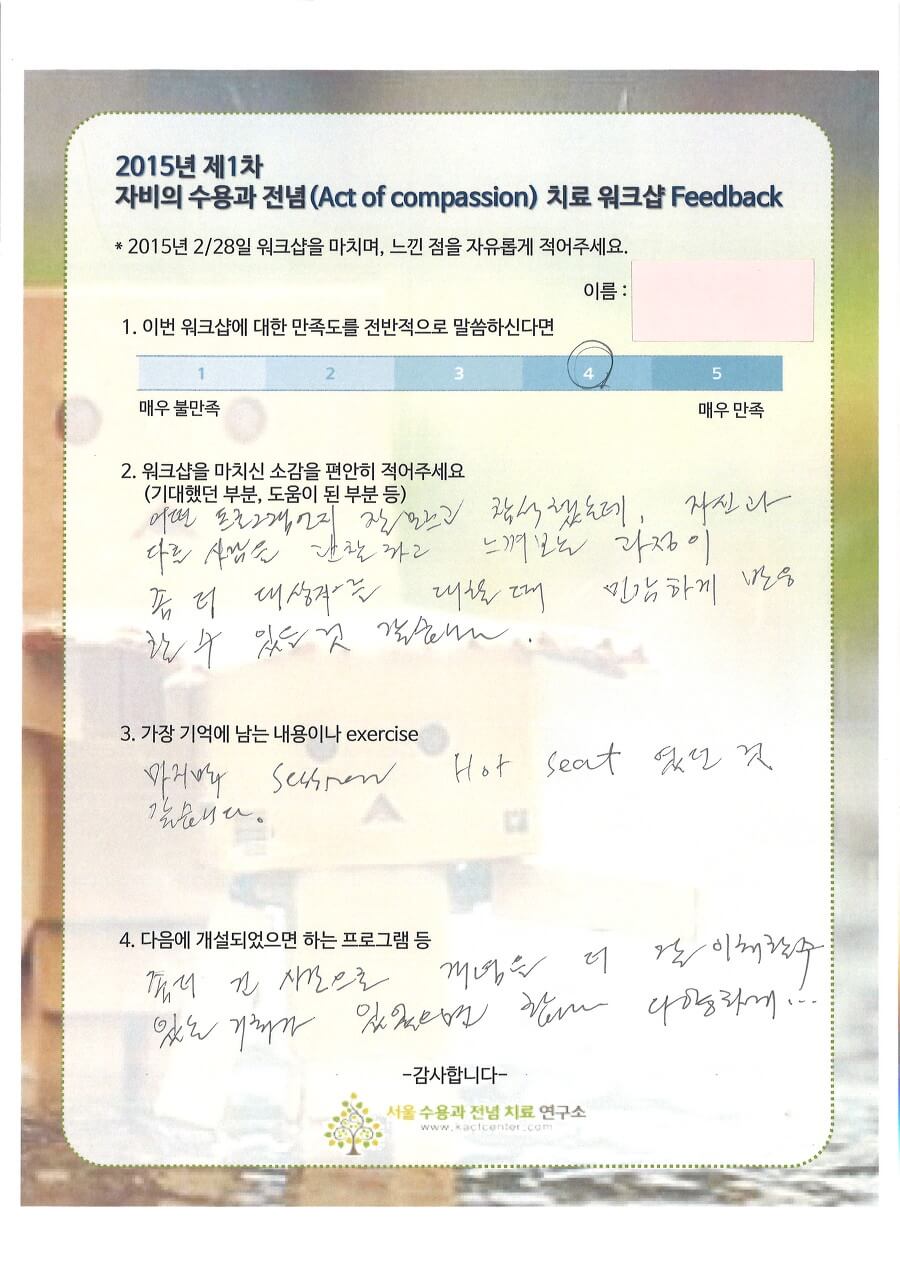 2015년 제1차
자비의 수용과 전념(Act of compassion) 치료 워크샵 Feedback
* 2015년 2/28일 워크샵을 마치며, 느낀 점을 자유롭게 적어주세요.
이름 :
1. 이번 워크샵에 대한 만족도를 전반적으로 말씀하신다면
1 2 3 4 5
매우 불만족 매우 만족
2. 워크샵을 마치신 소감을 편안히 적어주세요
(기대했던 부분, 도움이 된 부분 등)
어떤 프로그램인지 잘 모르고 참석했는데, 자신과
다른 사람을 관찰하고 느껴보는 과정이
좀 더 대상자를 대할 때 민감하게 반응
할 수 있을 것 같습니다.
3. 가장 기억에 남는 내용이나 exercise
마지막 session Hot seat 였던 것
같습니다.
4. 다음에 개설되었으면 하는 프로그램 등
좀더 긴 시간으로 개념을 더 잘 이해할 수
있는 기회가 있었으면 합니다 다양하게...
-감사합니다-
서울 수용과 전념 치료 연구소
www.kactcenter.com